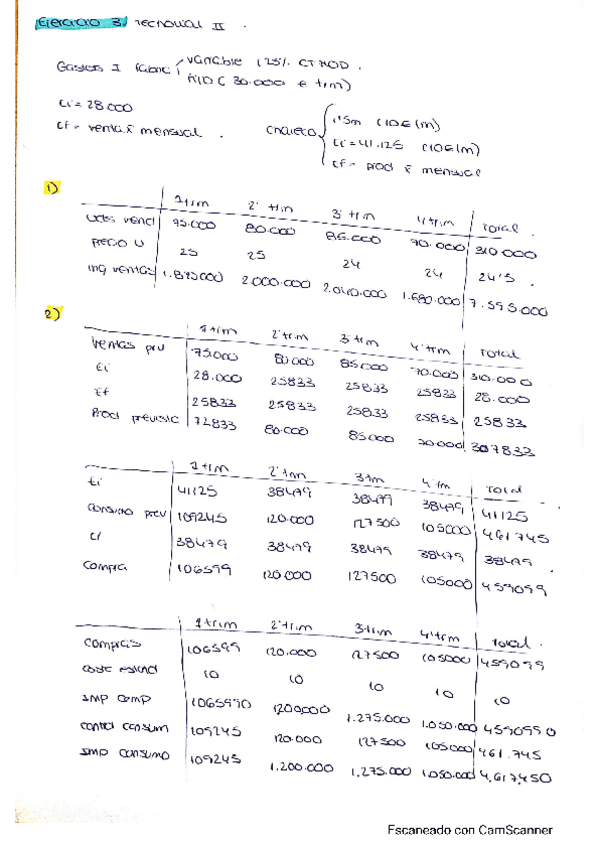 Ejercicio 3. Tecnolual II.
Gastos I fabric variable (25% CTMOD.
fijo (30.000 € trim)
Ei = 28.000
Ef = venta x̄ mensual.
chaleco
1'5m (10€/m)
Ei = 41.125 (10€/m)
Ef = prod x̄ mensual
1)
1 trim 2º trim 3º trim 4 trim Total.
uds vend 75.000 80.000 85.000 70.000 310.000
precio u 25 25 24 24 24'5
ing ventas 1.875000 2.000.000 2.040.000 1.680.000 7.595.000
2)
1 trim 2º trim 3 trim 4º trim Total
Ventas prv 75.000 80000 85000 70.000 310.000
Ei 28.000 25833 25833 25833 28.000
Ef 25833 25833 25833 25833 25833
Prod prevista 72833 80.000 85000 70.000 307833
1 trim 2º trim 3 trim 4º trim Total
Ei 41125 38479 38479 38479 41125
Consumo prev 109245 120.000 127500 105000 461745
Cf 38479 38479 38479 38479 38479
Compra 106599 120.000 127500 105000 459099
1 trim 2º trim 3 trim 4º trim Total.
Compras 106599 120.000 127500 105000 459099
coste estand 10 10 10 10 10
Imp comp 1065990 1200000 1.275.000 1.050.000 4590990
contid consum 109245 120.000 127500 105000 461.745
Imp consumo 109245 1.200.000 1.275.000 1.050.000 4.617.450
Escaneado con CamScanner